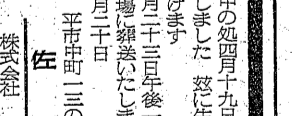 中の処四月十九日
しました 玆に生
げます
月二十三日午後一
場に葬送いたしま
月二十日
平市中町一三の
佐
株式会社